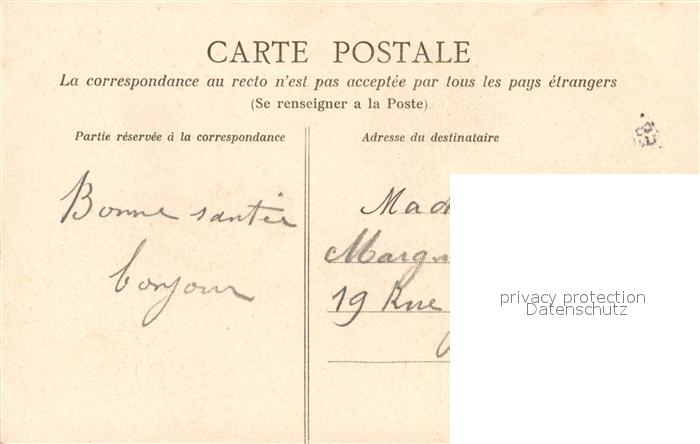 CARTE POSTALE
La correspondance au recto n'est pas acceptée par tous les pays étrangers
(Se renseigner a la Poste)
Partie réservée à la correspondance
Adresse du destinataire
Bonne santée
bonjour
Mad
Marg
19 Rue
privacy protection
Datenschutz